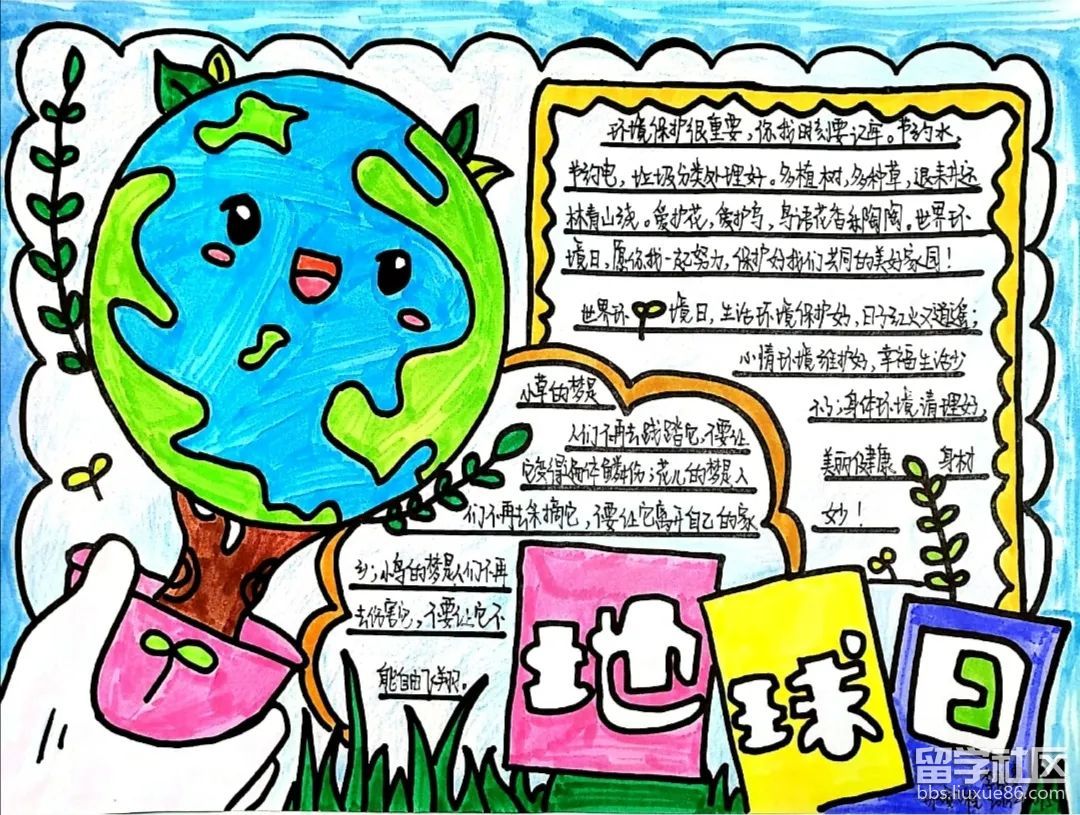 环境保护很重要，你我时刻要记牢。节约水，
节约电，垃圾分类处理好。多植树，多种草，退耒开还
林青山绕。爱护花，爱护鸟，鸟语花香乐陶陶。世界环
境日，愿你我一起努力，保护好我们共同的美好家园！
世界环境日，生活环境保护好，日子红火又逍遥；
心情环境维护好，幸福生活少
不了；身体环境清理好，
美丽健康 身材
妙！
小草的梦是
人们不再去践踏它，不要让
它变得遍体鳞伤；花儿的梦是人
们不再去采摘它，不要让它离开自己的家
乡；小鸟的梦是人们不再
去伤害它，不要让它不
能自由飞翔。
地球日
留学社区
bbs.liuxue86.com